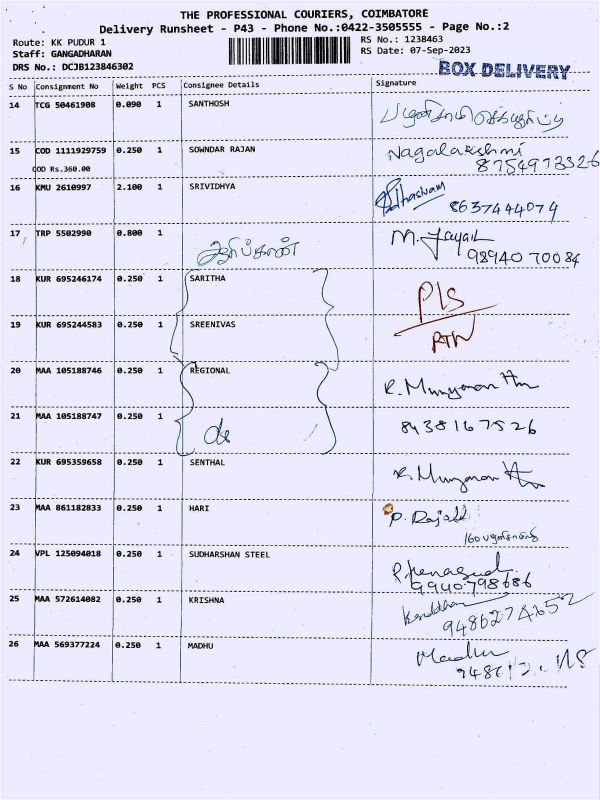 THE PROFESSIONAL COURIERS, COIMBATORE
Delivery Runsheet - P43 - Phone No.:0422-3505555 - Page No.:2
Route: KK PUDUR 1
Staff: GANGADHARAN
DRS No.: DCJB123846302
RS No.: 1238463
RS Date: 07-Sep-2023
BOX DELIVERY
S No Consignment No Weight PCS Consignee Details Signature
14 TCG 50461908 0.090 1 SANTHOSH
15 COD 1111929759 0.250 1 SOWNDAR RAJAN Nagalakshmi
COD Rs.360.00 8754973326
16 KMU 2610997 2.100 1 SRIVIDHYA
8637444079
17 TRP 5502990 0.800 1 M.
98940 70084
18 KUR 695246174 0.250 1 SARITHA
19 KUR 695244583 0.250 1 SREENIVAS
20 MAA 105188746 0.250 1 REGIONAL
21 MAA 105188747 0.250 1 8438167526
22 KUR 695359658 0.250 1 SENTHAL
23 MAA 861182833 0.250 1 HARI
24 VPL 125094018 0.250 1 SUDHARSHAN STEEL
9940798686
25 MAA 572614082 0.250 1 KRISHNA
26 MAA 569377224 0.250 1 MADHU Madhu